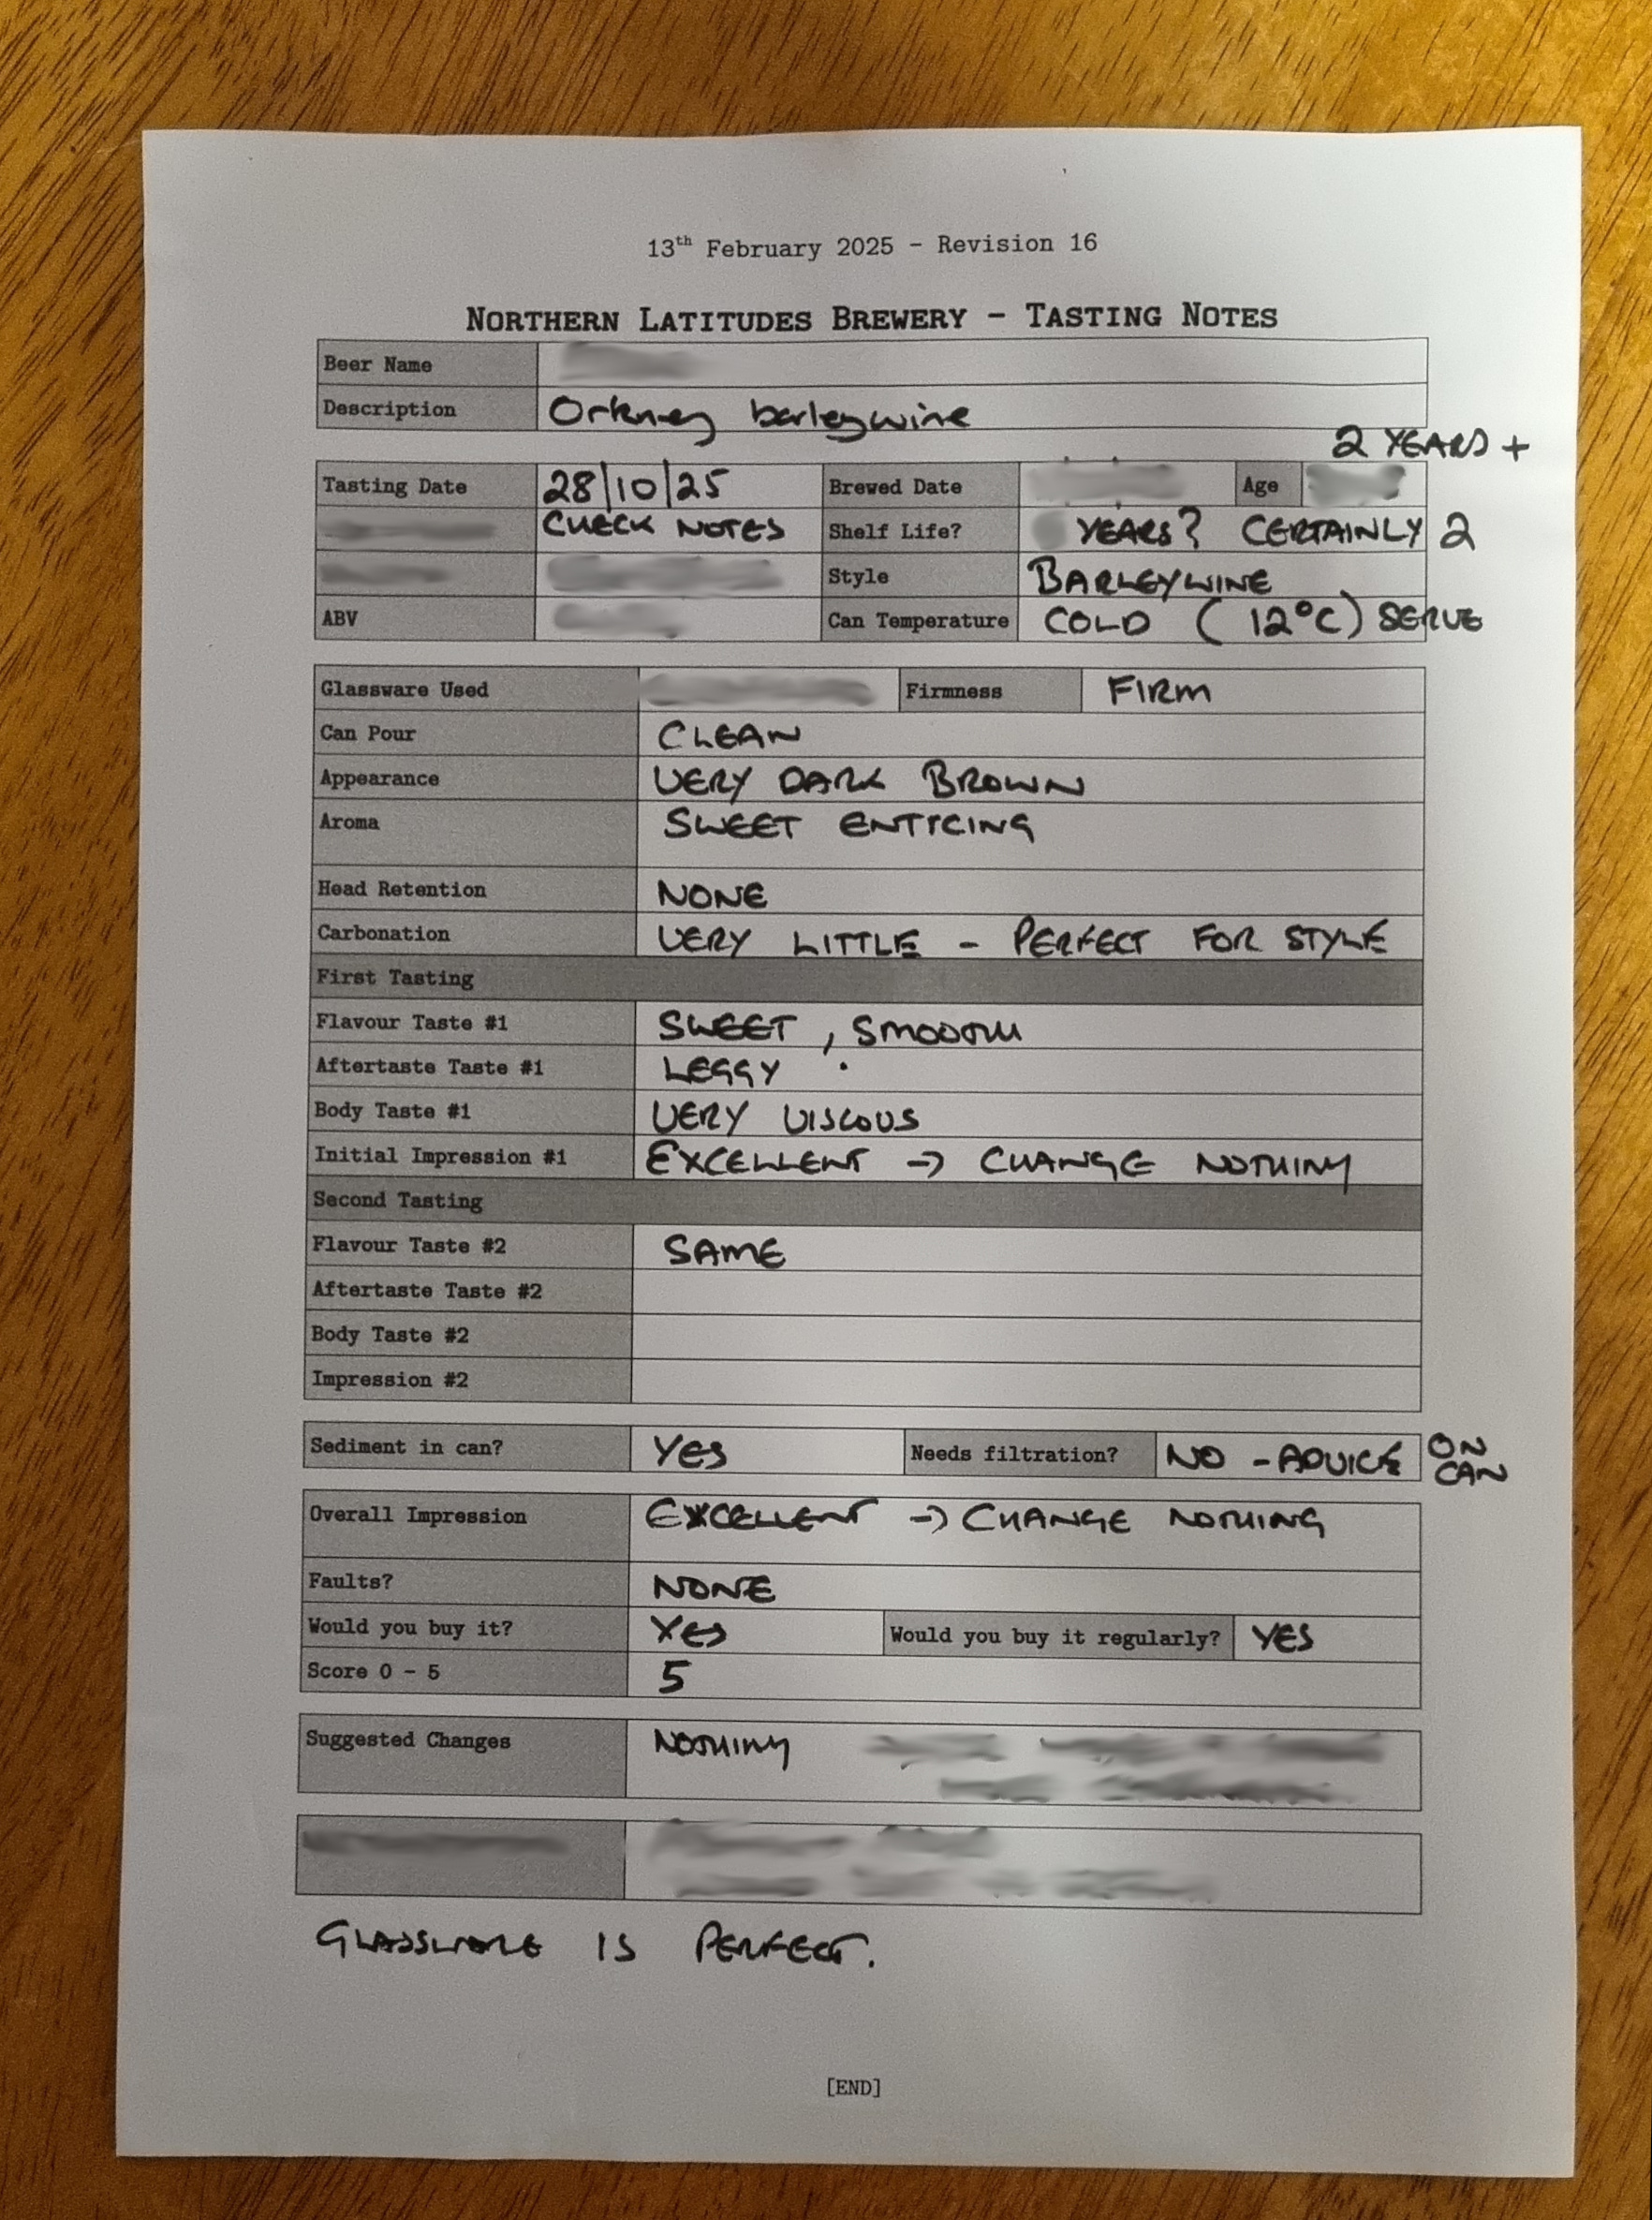 13th February 2025 - Revision 16
NORTHERN LATITUDES BREWERY - TASTING NOTES
Beer Name
Description Orkney barleywine
2 YEARS +
Tasting Date 28/10/25 Brewed Date Age
CHECK NOTES Shelf Life? YEARS? CERTAINLY 2
Style BARLEYWINE
ABV Can Temperature COLD (12°C) SERVE
Glassware Used Firmness FIRM
Can Pour CLEAN
Appearance VERY DARK BROWN
Aroma SWEET ENTICING
Head Retention NONE
Carbonation VERY LITTLE - PERFECT FOR STYLE
First Tasting
Flavour Taste #1 SWEET, SMOOTH
Aftertaste Taste #1 LEGGY
Body Taste #1 VERY VISCOUS
Initial Impression #1 EXCELLENT → CHANGE NOTHING
Second Tasting
Flavour Taste #2 SAME
Aftertaste Taste #2
Body Taste #2
Impression #2
Sediment in can? YES Needs filtration? NO - ADVICE ON CAN
Overall Impression EXCELLENT → CHANGE NOTHING
Faults? NONE
Would you buy it? YES Would you buy it regularly? YES
Score 0 - 5 5
Suggested Changes NOTHING
GLASSWARE IS PERFECT.
[END]